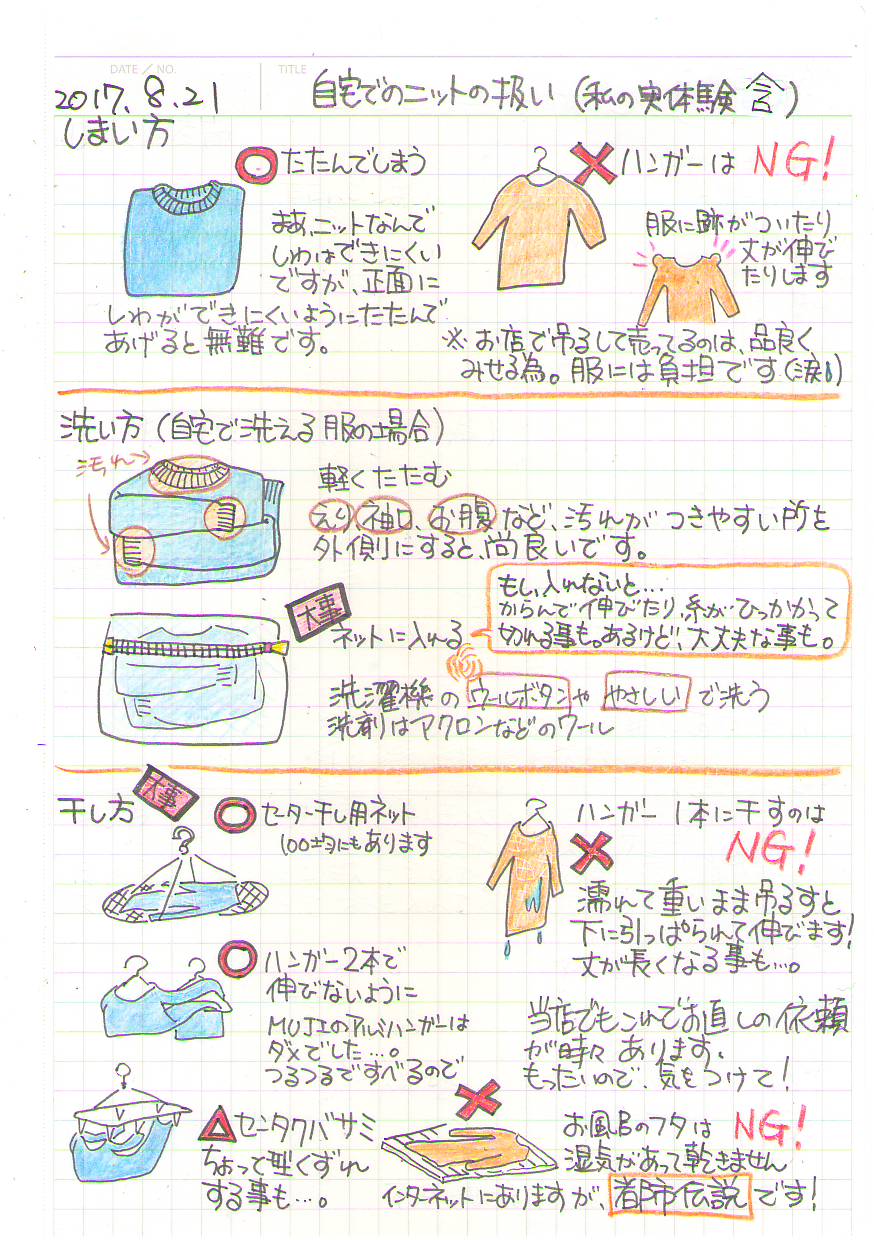 DATE / NO.
TITLE
2017. 8. 21
自宅でのニットの扱い (私の実体験含)
しまい方
たたんでしまう
まあ、ニットなんで
しわはできにくい
ですが、正面に
しわができにくいようにたたんで
あげると無難です。
ハンガーは NG!
服に跡がついたり
丈が伸び
たりします
※ お店で吊るして売ってるのは、品良く
みせる為。服には負担です(涙)
洗い方 (自宅で洗える服の場合)
汚れ
軽くたたむ
えり、袖口、お腹など、汚れがつきやすい所を
外側にすると、尚良いです。
大事
ネットに入れる
もし、入れないと…
からんで伸びたり、糸がひっかかって
切れる事も。あるけど、大丈夫な事も。
洗濯機のウールボタンややさしいで洗う
洗剤はアクロンなどのウール
干し方
大事
セーター干し用ネット
100均にもあります
ハンガー2本で
伸びないように
MUJIのアルミハンガーは
ダメでした…。
つるつるですべるので
センタクバサミ
ちょって型くずれ
する事も…。
ハンガー1本に干すのは
NG!
濡れて重いまま吊るすと
下に引っぱられて伸びます!
丈が長くなる事も…。
当店でもこれでお直しの依頼
が時々あります。
もったいので、気をつけて!
お風呂のフタは NG!
湿気があって乾きません
インターネットにありますが、都市伝説です!